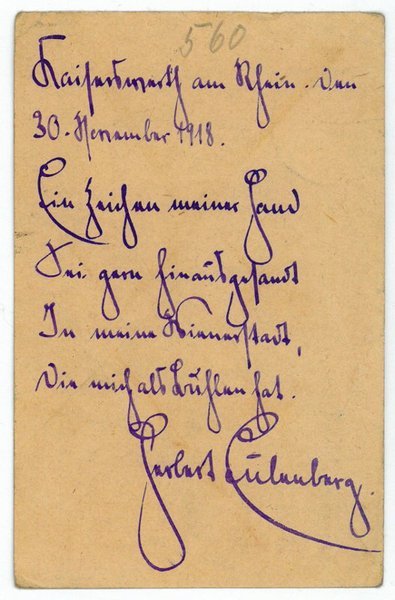 560
Kaiserswerth am Rhein. Den
30. November 1918.
Ein Zeichen meiner Hand
Sei gern hinausgesandt
In meine Wienerstadt,
Die mich als Buhlen hat.
Herbert Eulenberg.